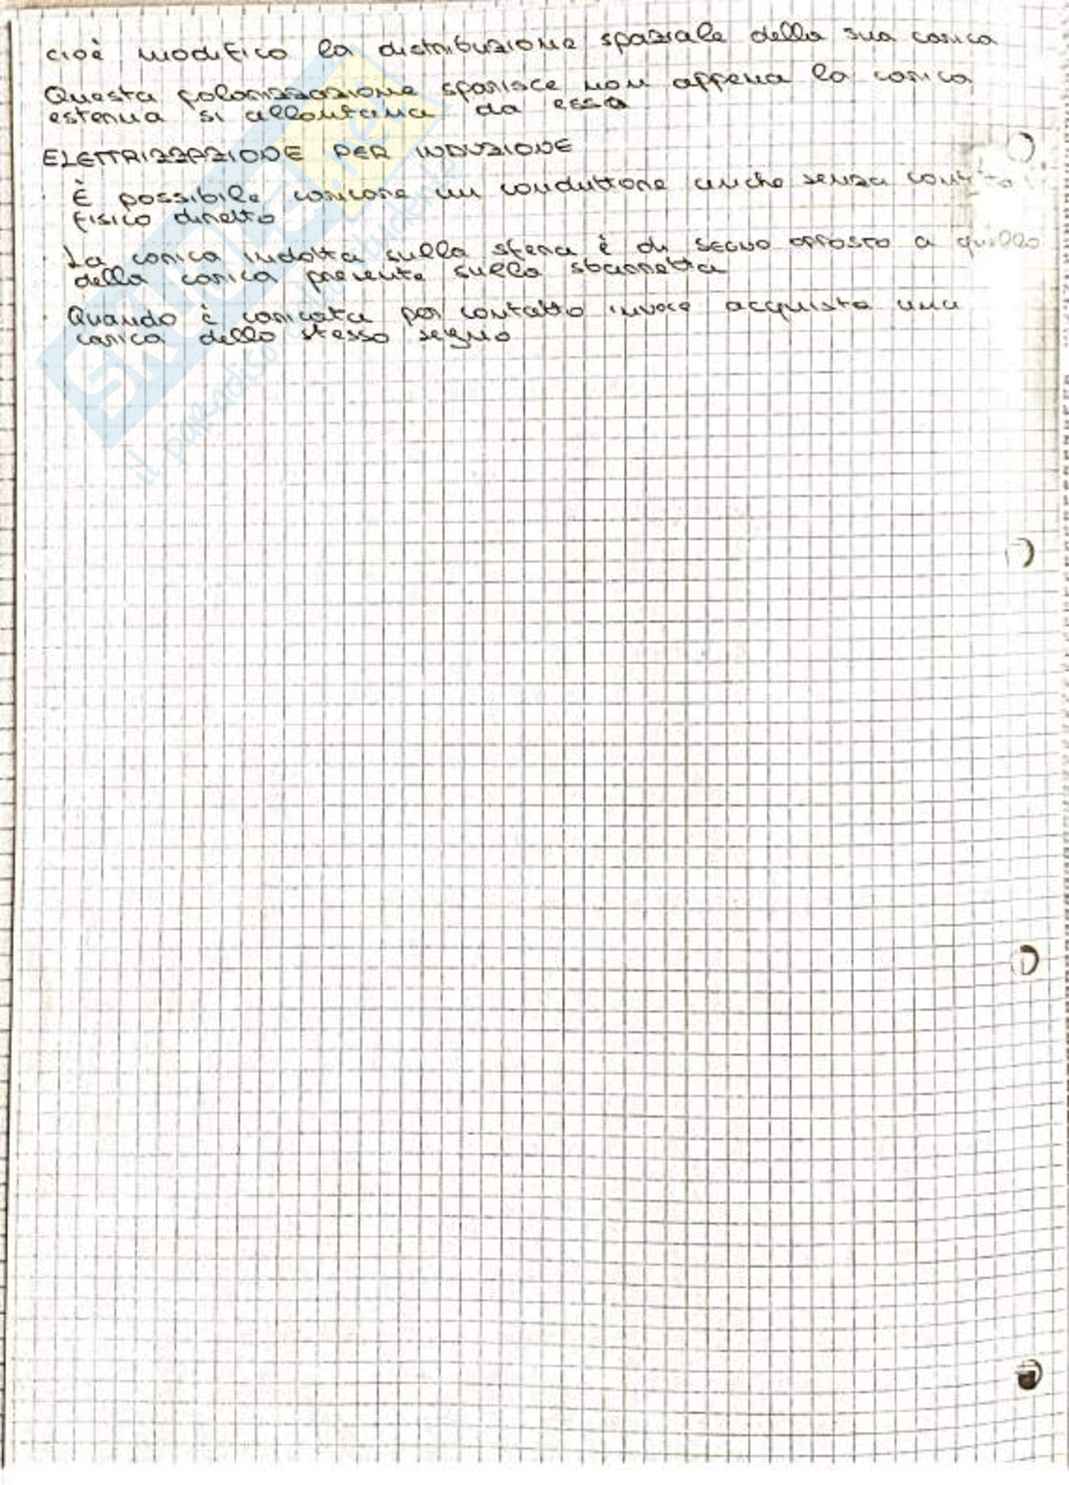 cioè modifico la distribuzione spaziale della sua carica
Questa polarizzazione sparisce non appena la carica
esterna si allontana da essa
ELETTRIZZAZIONE PER INDUZIONE
· È possibile caricare un conduttore anche senza contatto
fisico diretto
· La carica indotta sulla sfera è di segno opposto a quello
della carica presente sulla sbarretta
· Quando è caricata per contatto invece acquista una
carica dello stesso segno
SKUOLA.net